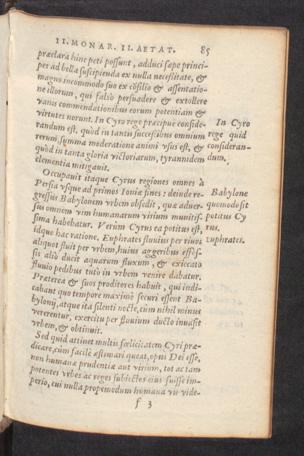 II. MONAR. II. AETAT. 85
præclara hinc peti possunt, adduci sæpe princi-
per ad bella suscipienda ex nulla necessitate, &
magno incommodo suo ex cōsilio & assentatio-
ne illorum, qui falsò persuadere & extollere
vanis commendationibus eorum potentiam &
virtutes norunt. In Cyro rege præcipue conside-
randum est, quòd in tantis successibus omnium
rerum summa moderatione animi vsus est, &
quòd in tanta gloria victoriarum, tyrannidem
clementia mitigauit.
In Cyro
rege quid
consideran-
dum.
Occupauit itaque Cyrus regiones omnes à
Persia vsque ad primos Ionię fines: deinde re-
gressus Babylonem vrbem obsedit, quæ aduer-
sus omnem vim humanarum virium munitis-
sima habebatur. Verùm Cyrus ea potitus est,
idque hac ratione. Euphrates fluuius per ripas
aliquot fluit per vrbem, huius aggeribus effos-
sis aliò ducit aquarum fluxum, & exiccato
fluuio pedibus tutò in vrbem venire dabatur.
Præterea & suos proditores habuit, qui indi-
cabant quo tempore maximè securi essent Ba-
bylonij, atque ita silenti nocte, cùm nihil minus
vererentur, exercitu per fluuium ducto inuasit
vrbem, & obtinuit.
Babylone
quomodo sit
potitus Cy
rus.
Euphrates.
Sed quid attinet multis fœlicitatem Cyri præ-
dicare, cùm facilè æstimari queat, opus Dei esse,
non humanæ prudentiæ aut virium, tot ac tam
potentes vrbes ac reges subiectos eius fuisse im-
perio, cui nulla propemodum humana vis vide-
f 3